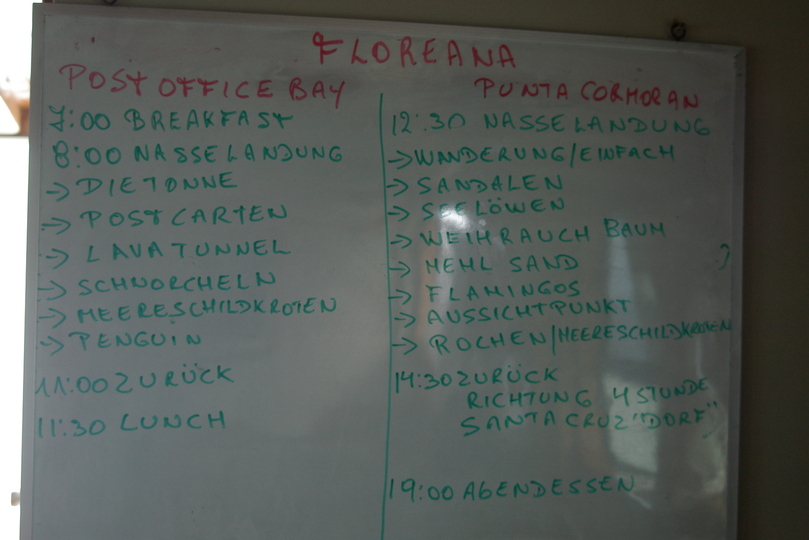 FLOREANA
POST OFFICE BAY
7:00 BREAKFAST
8:00 NASSE LANDUNG
→ DIE TONNE
→ POSTCARTEN
→ LAVA TUNNEL
→ SCHNORCHELN
→ MEERESCHILDKROTEN
→ PENGUIN
11:00 ZURÜCK
11:30 LUNCH
PUNTA CORMORAN
12:30 NASSE LANDUNG
→ WANDERUNG/EINFACH
→ SANDALEN
→ SEELÖWEN
→ WEIHRAUCH BAUM
→ MEHL SAND
→ FLAMINGOS
→ AUSSICHTPUNKT
→ ROCHEN/MEERESCHILDKROTEN
14:30 ZURÜCK
RICHTUNG 4 STUNDE
SANTA CRUZ "DORF"
19:00 ABENDESSEN